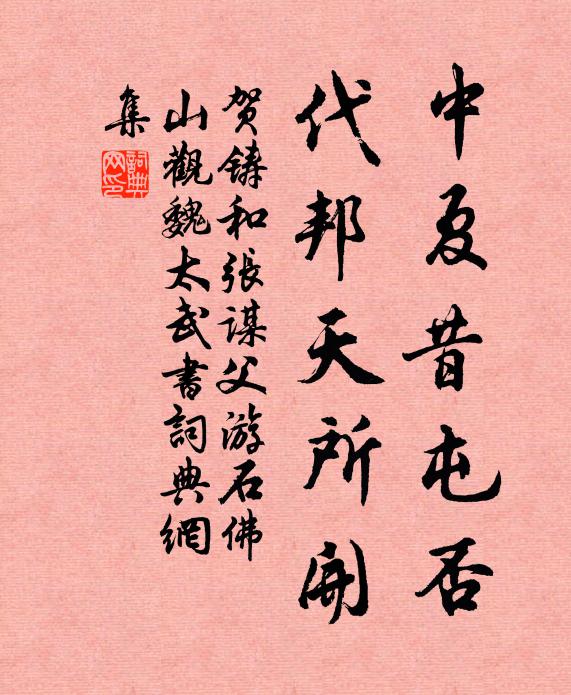 中夏昔屯否
代邦天所開
贺鑄和張謀父游石佛
山觀魏太武書詞典網
集
詞典
网印